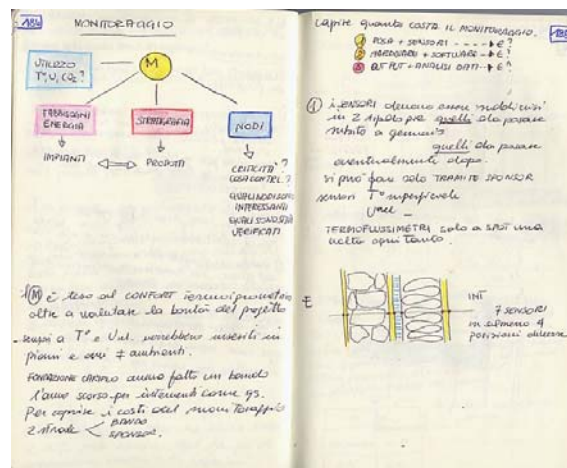 184
MONITORAGGIO
UTILIZZO
T°, U, CO2 ?
M
FABBISOGNI
ENERGIA
STRATIGRAFIA
NODI
IMPIANTI
PRODOTTI
CRITICITÀ?
COSA CONTROL.?
QUALI NODI SONO
INTERESSANTI
QUALI SONO STATI
VERIFICATI
M è teso al CONFORT termoigrometrico
oltre a valutare la bontà del progetto
sensori a T° e U.rel. verrebbero inseriti in
piani e ≠ ambienti.
FONDAZIONE CARIPLO hanno fatto un bando
l'anno scorso per interventi come qs.
Per capire i costi del monitoraggio
2 strade < BANDO
SPONSOR.
Capire quanto costa il monitoraggio.
1 POSA + SENSORI → € ?
2 HARDWARE + SOFTWARE → € ?
3 OUTPUT + ANALISI DATI → € ?
1 i SENSORI devono essere suddivisi
in 2 tipologie quelli da posare
subito a gennaio
quelli da posare
eventualmente dopo.
si può fare solo TRAMITE SPONSOR
sensori T° superficiali
Urel
TERMOFLUSSIMETRI solo a SPOT una
volta ogni tanto.
E
INT
7 SENSORI
in almeno 4
posizioni diverse